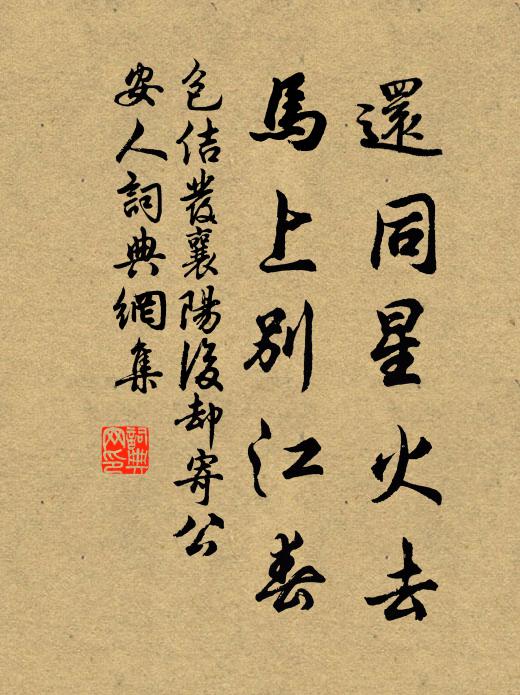 還同星火去
馬上別江春
包佶發襄陽後却寄公
安人詞典網集
詞典
网印